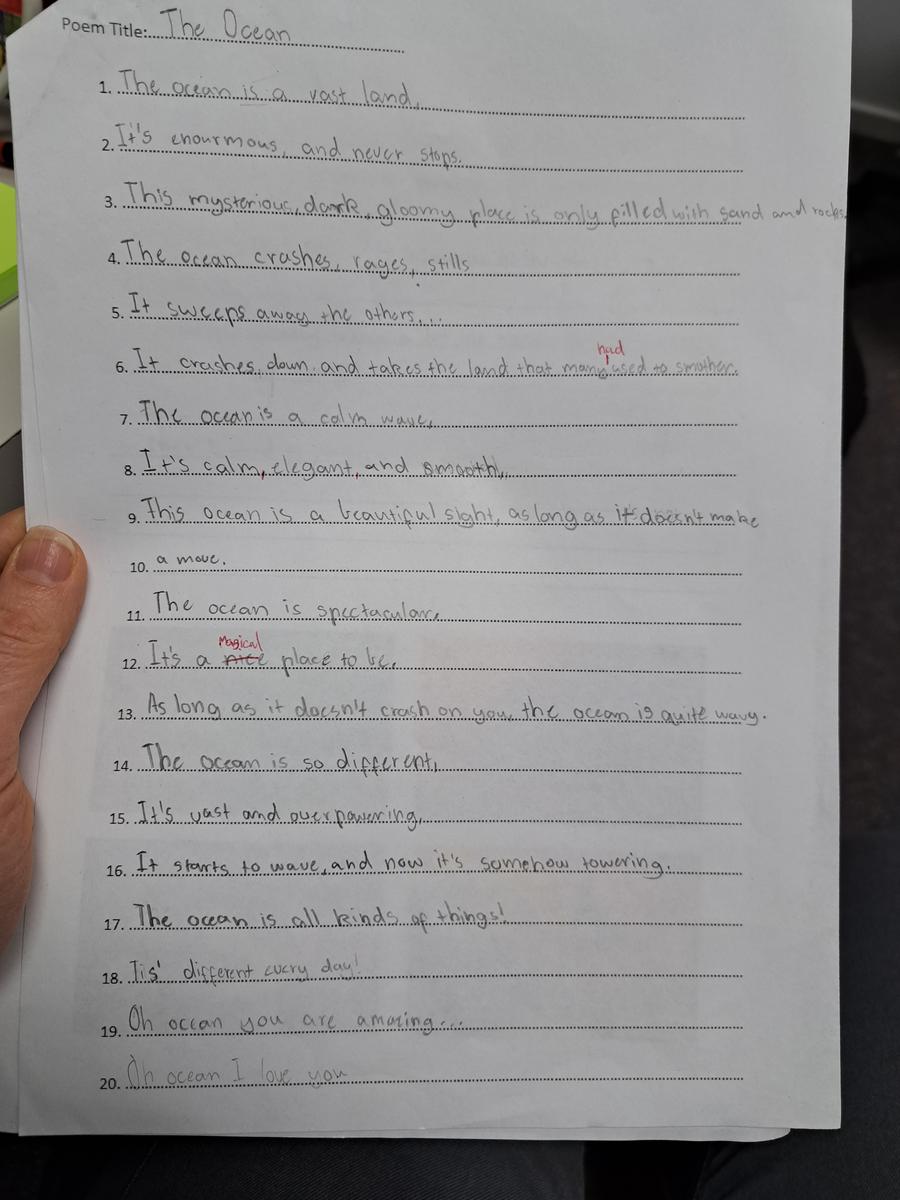 Poem Title: The Ocean
1. The ocean is a vast land,
2. It's enourmous, and never stops.
3. This mysterious, dark, gloomy place is only filled with sand and rocks.
4. The ocean crashes, rages, stills
5. It sweeps away the others...
had
6. It crashes down and takes the land that many used to smother.
7. The ocean is a calm wave,
8. It's calm, elegant, and smooth,
9. This ocean is a beautiful sight, as long as it doesn't make
10. a move.
11. The ocean is spectacular,
Magical
12. It's a nice place to be,
13. As long as it doesn't crash on you, the ocean is quite wavy.
14. The ocean is so different,
15. It's vast and overpowering,
16. It starts to wave, and now it's somehow towering.
17. The ocean is all kinds of things!
18. Tis' different every day!
19. Oh ocean you are amazing...
20. Oh ocean I love you